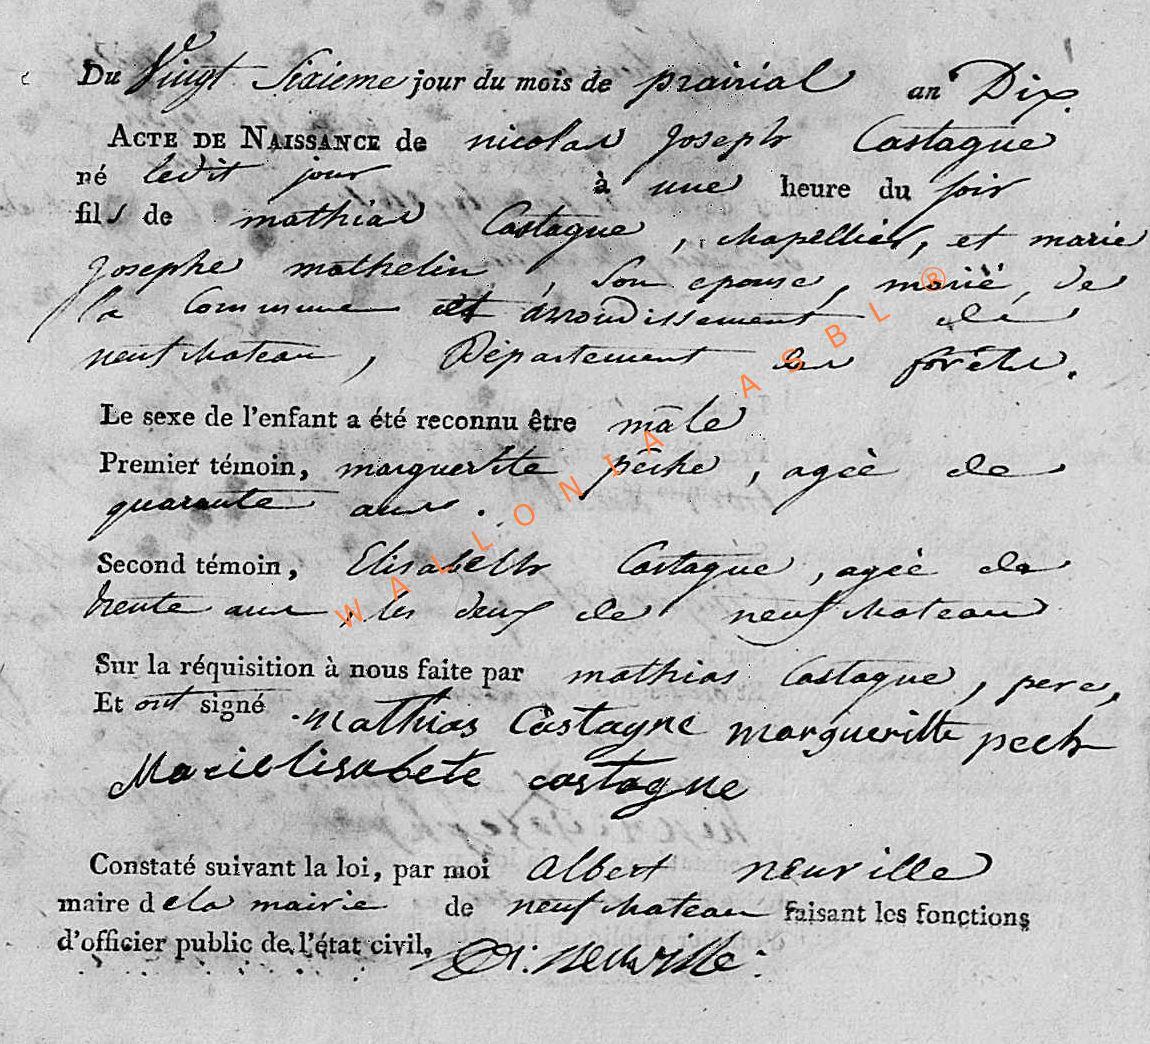 Du Vingt Sixieme jour du mois de prairial an Dix.
ACTE DE NAISSANCE de nicolas Joseph Castagne
né ledit jour à une heure du soir
fils de mathias Castagne, chapellier, et marie
Josephe mathelin, son epouse, marié, de
la Commune et arrondissement de
neufchateau, Département des forêts.
Le sexe de l'enfant a été reconnu être mâle
Premier témoin, marguerite pêche, agée de
quarante ans.
Second témoin, Elisabeth Castagne, agée de
trente ans, les deux de neufchateau
Sur la réquisition à nous faite par mathias Castagne, pere,
Et ont signé Mathias Castagne margueritte pech
Marielisabete castagne
Constaté suivant la loi, par moi Albert neuville
maire de la mairie de neufchateau faisant les fonctions
d'officier public de l'état civil. neuville
WALLONIA ASBL ®